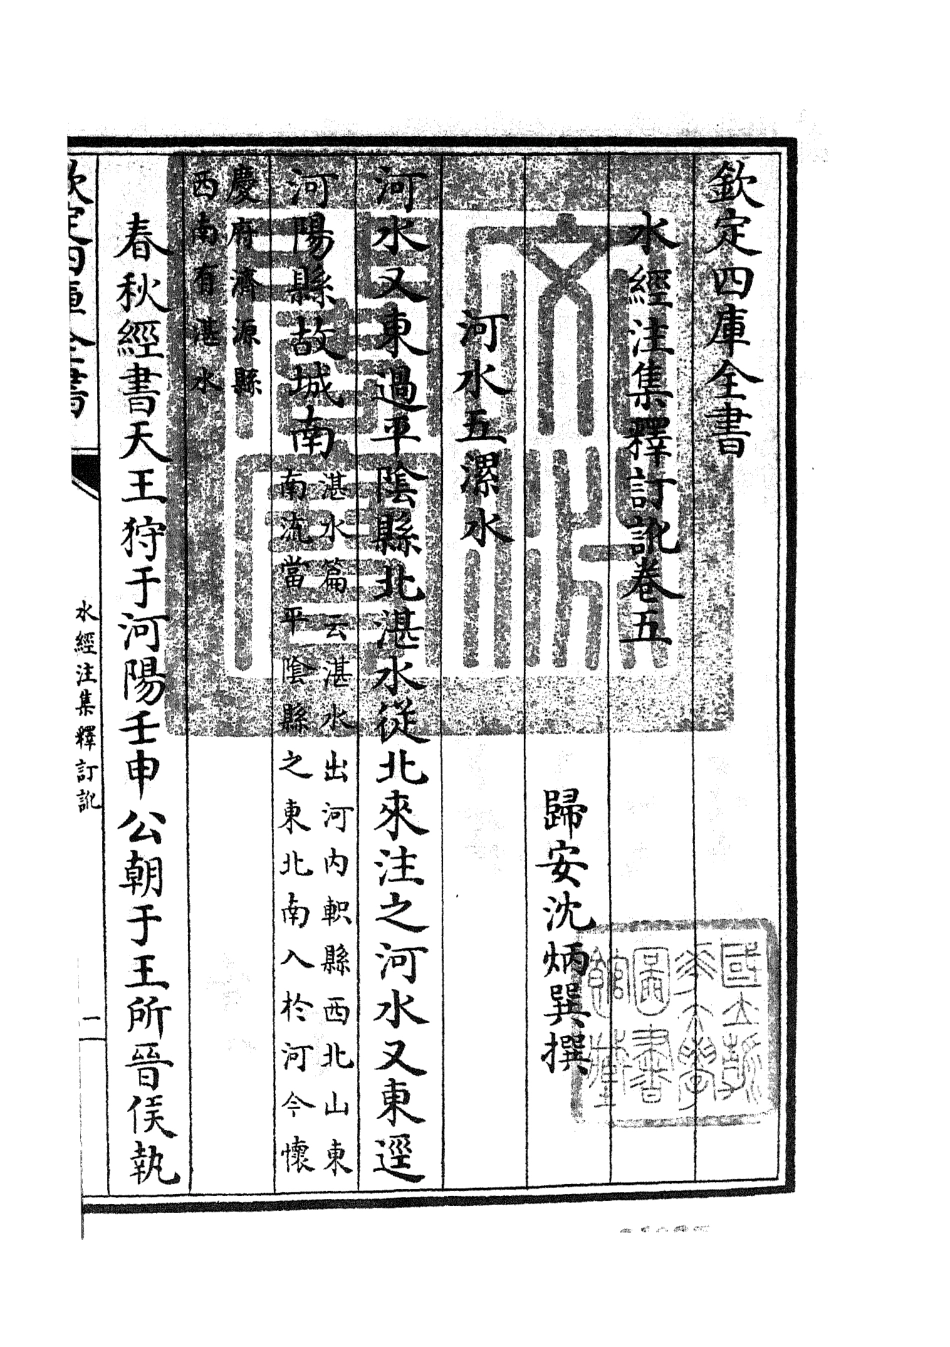 欽定四庫全書
水經注集釋訂訛卷五
歸安沈炳巽撰
河水五漯水
河水又東過平陰縣北湛水從北來注之河水又東逕
河陽縣故城南湛水篇云湛水出河内軹縣西北山東
南流當平陰縣之東北南入於河今懷
慶府濟源縣
西南有湛水
春秋經書天王狩于河陽壬申公朝于王所晉侯執
欽定四庫全書
水經注集釋訂訛
一
文淵閣寶